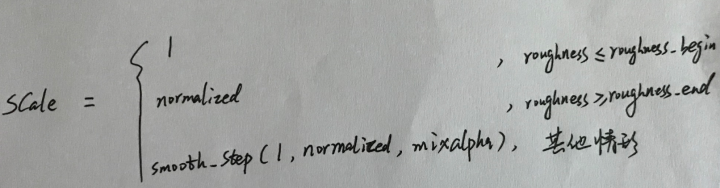 Scale = { 1 , roughness ≤ roughness_begin
normalized , roughness ≥ roughness_end
smooth_step(1, normalized, mixalpha), 其他情形